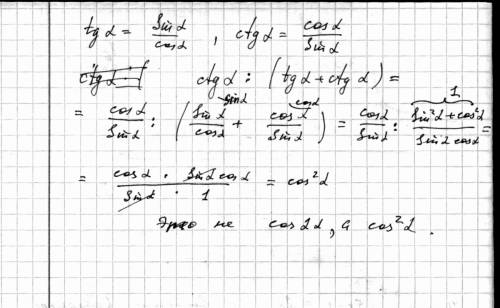 tg α = sin α / cos α , ctg α = cos α / sin α
ctg α : (tg α + ctg α) =
= cos α / sin α : (sin α / cos α + cos α / sin α) = cos α / sin α : (sin²α + cos²α) / (sin α cos α) =
= (cos α · sin α cos α) / (sin α · 1) = cos²α
Это не cos 2α, а cos²α.